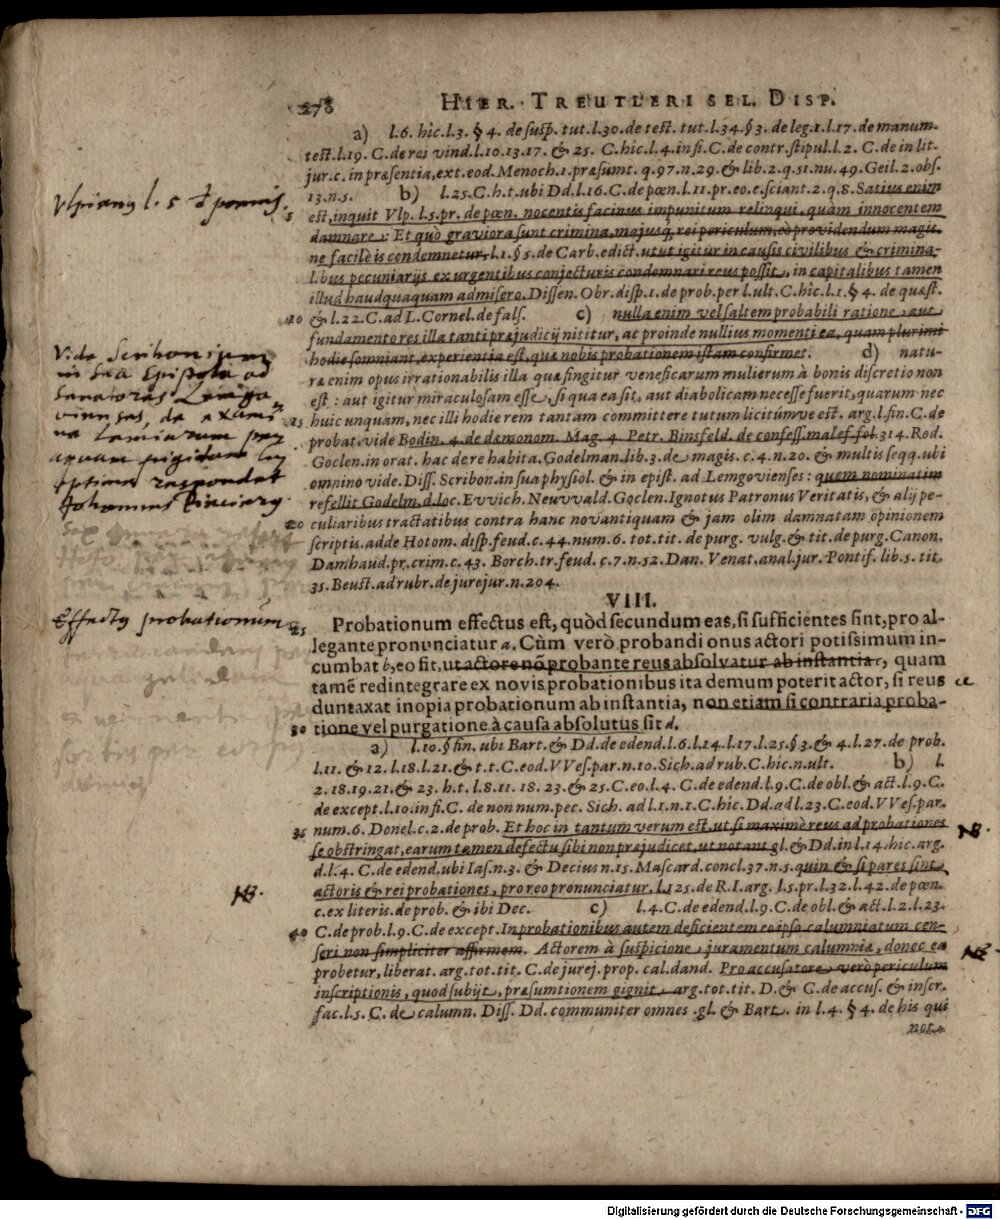 278 HIER. TREUTLERI SEL. DISP.
a) l.6. hic.l.3. § 4. de susp. tut.l.30.de test. tut.l.34.§ 3. de leg.1.l.17.de manum.
test.l.19. C.de rei vind.l.10.13.17. & 25. C.hic.l.4.in fi.C.de contr.stipul.l.2. C.de in lit.
jur.c.in præsentia,ext.eod.Menoch.1.præsumt. q.97.n.29.& lib.2.q.51.nu.49.Geil.2.obs.
13.n.5. b) l.25.C.h.t.ubi Dd.l.16.C.de pœn.l.11.pr.eo.c.sciant.2.q.8.Satius enim
Vlpianus l. 5
5 est,inquit Vlp.l.5.pr.de pœn. nocentis facinus impunitum relinqui, quam innocentem
damnare: Et quò graviora sunt crimina,majusq́, rei periculum,eò providendum magis,
ne facilè is condemnetur,l.1.§ 5.de Carb.edict.ut ut igitur in caußis civilibus & crimina-
libus pecuniarijs ex urgentibus conjecturis condemnari reus poßit, in capitalibus tamen
illud haudquaquam admisero.Dissen. Obr.disp.1.de prob.per l.ult.C.hic.l.1.§ 4. de quæst.
10 & l.22.C.ad L.Cornel.de fals. c) nulla enim vel saltem probabili ratione, aut
fundamento res illa tanti præjudicij nititur, ac proinde nullius momenti ea, quam plurimi
hodie somniant,experientia est,quæ nobis probationem istam confirmet. d) natu-
ræ enim opus irrationabilis illa quæ fingitur veneficarum mulierum à bonis discretio non
est : aut igitur miraculosam esse, si qua ea sit, aut diabolicam necesse fuerit,quarum nec
15 huic unquam,nec illi hodie rem tantam committere tutum licitúmve est. arg.l.fin.C.de
probat.vide Bodin. 4.de dæmonom. Mag. 4. Petr. Binsfeld. de confess.malef.fol.314.Rod.
Goclen.in orat. hac de re habita.Godelman.lib.3.de magis.c.4.n.20. & multis seqq.ubi
omnino vide.Diss.Scribon.in sua physiol.& in epist. ad Lemgovienses: quem nominatim
refellit Godelm.d.loc.Evvich.Neuvvald.Goclen.Ignotus Patronus Veritatis,& alij pe-
20 culiaribus tractatibus contra hanc novantiquam & jam olim damnatam opinionem
scriptis.adde Hotom. disp.feud.c.44.num.6.tot.tit. de purg. vulg.& tit.de purg.Canon.
Damhaud.pr.crim.c.43. Borch.tr.feud.c.7.n.52.Dan.Venat.anal.jur.Pontif.lib.5.tit.
35.Beust.ad rubr.de jurejur.n.204.
Vide Scribonium
in sua Epistola ad
senatores Lemgo
vienses, de exami
ne lamiarum per
aquam frigidam
optime respondet
Johannes
VIII.
Effectus probationum
25 Probationum effectus est, quòd secundum eas,si sufficientes sint,pro al-
legante pronunciatur a.Cùm verò probandi onus actori potissimum in-
cumbat b,eo fit,ut actore nō probante reus absolvatur ab instantia c, quam
tamē redintegrare ex novis probationibus ita demum poterit actor, si reus
duntaxat inopia probationum ab instantia, non etiam si contraria proba-
30 tione vel purgatione à causa absolutus sit d.
a) l.10.§ fin. ubi Bart.& Dd.de edend.l.6.l.14.l.17.l.25.§ 3.& 4.l.27.de prob.
l.11. & 12.l.18.l.21.& t.t.C.eod.VVes.par.n.10.Sich.ad rub.C.hic.n.ult. b) l.
2.18.19.21.& 23. h.t. l.8.11. 18. 23.& 25.C.eo.l.4. C.de edend.l.9.C.de obl.& act.l.9.C.
de except.l.10.infi.C. de non num.pec. Sich. ad l.1.n.1.C.hic.Dd.ad l.23.C.eod.VVes.par.
35 num.6. Donel.c.2.de prob. Et hoc in tantum verum est,ut si maximè reus ad probationes
NB.
se obstringat,earum tamen defectu sibi non præjudicet,ut notant gl.& Dd.in l.14.hic.arg.
d.l.4. C.de edend.ubi Ias.n.3. & Decius n.15.Mascard.concl.37.n.5.quin & si pares sint
NB.
actoris & rei probationes, pro reo pronunciatur, l.125.de R.I.arg. l.5.pr.l.32.l.42.de pœn.
c.ex literis.de prob. & ibi Dec. c) l.4.C.de edend.l.9.C.de obl.& act.l.2.l.23.
40 C.de prob.l.9.C.de except.In probationibus autem deficientem eo ipso calumniatum cen-
seri non simpliciter affirmem. Actorem à suspicione, juramentum calumniæ, donec ea
NB.
probetur, liberat. arg.tot.tit. C.de jurej.prop. cal.dand. Pro accusatore verò periculum
inscriptionis, quod subijt, præsumtionem gignit, arg.tot.tit. D.& C.de accus. & inscr.
fac.l.5. C. de calumn. Diss. Dd. communiter omnes .gl. & Bart. in l.4. § 4. de his qui
not.
Digitalisierung gefördert durch die Deutsche Forschungsgemeinschaft - DFG